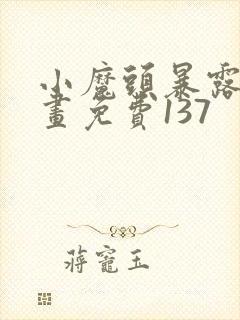 小魔頭暴露
畫免費137
蔣寵玉